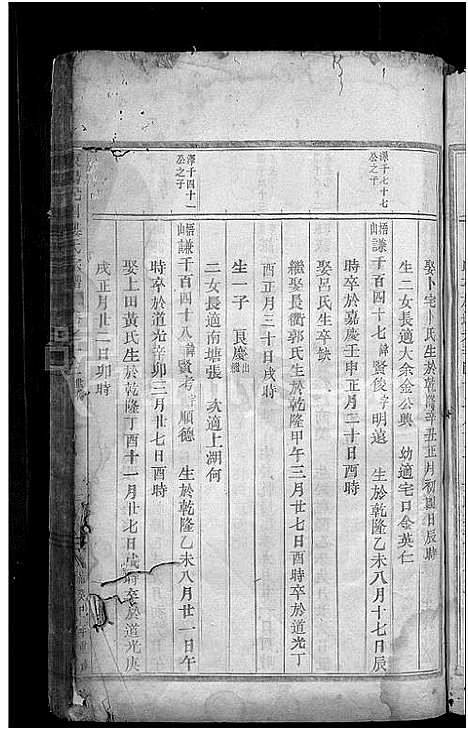 娶卜宅卜氏生於乾隆辛丑正月初四日辰時
生二女長適大余金公興　幼適宅口金英仁
澤千七十七公之子
梧山謙千百四十七諱賢俊字明遠　生於乾隆乙未八月十七日辰
時卒於嘉慶壬申正月二十日酉時
娶呂氏生卒缺
繼娶長衢郭氏生於乾隆甲午三月廿七日酉時卒於道光丁
酉正月三十日戌時
生一子　良慶出繼
二女長適南塘張　次適上湖何
澤千四十一公之子
梧山謙千百四十八諱賢考字順德　生於乾隆乙未八月廿一日午
時卒於道光辛卯三月廿七日酉時
娶上田黃氏生於乾隆丁酉十一月廿七日戌時卒於道光庚
戌正月廿二日卯時